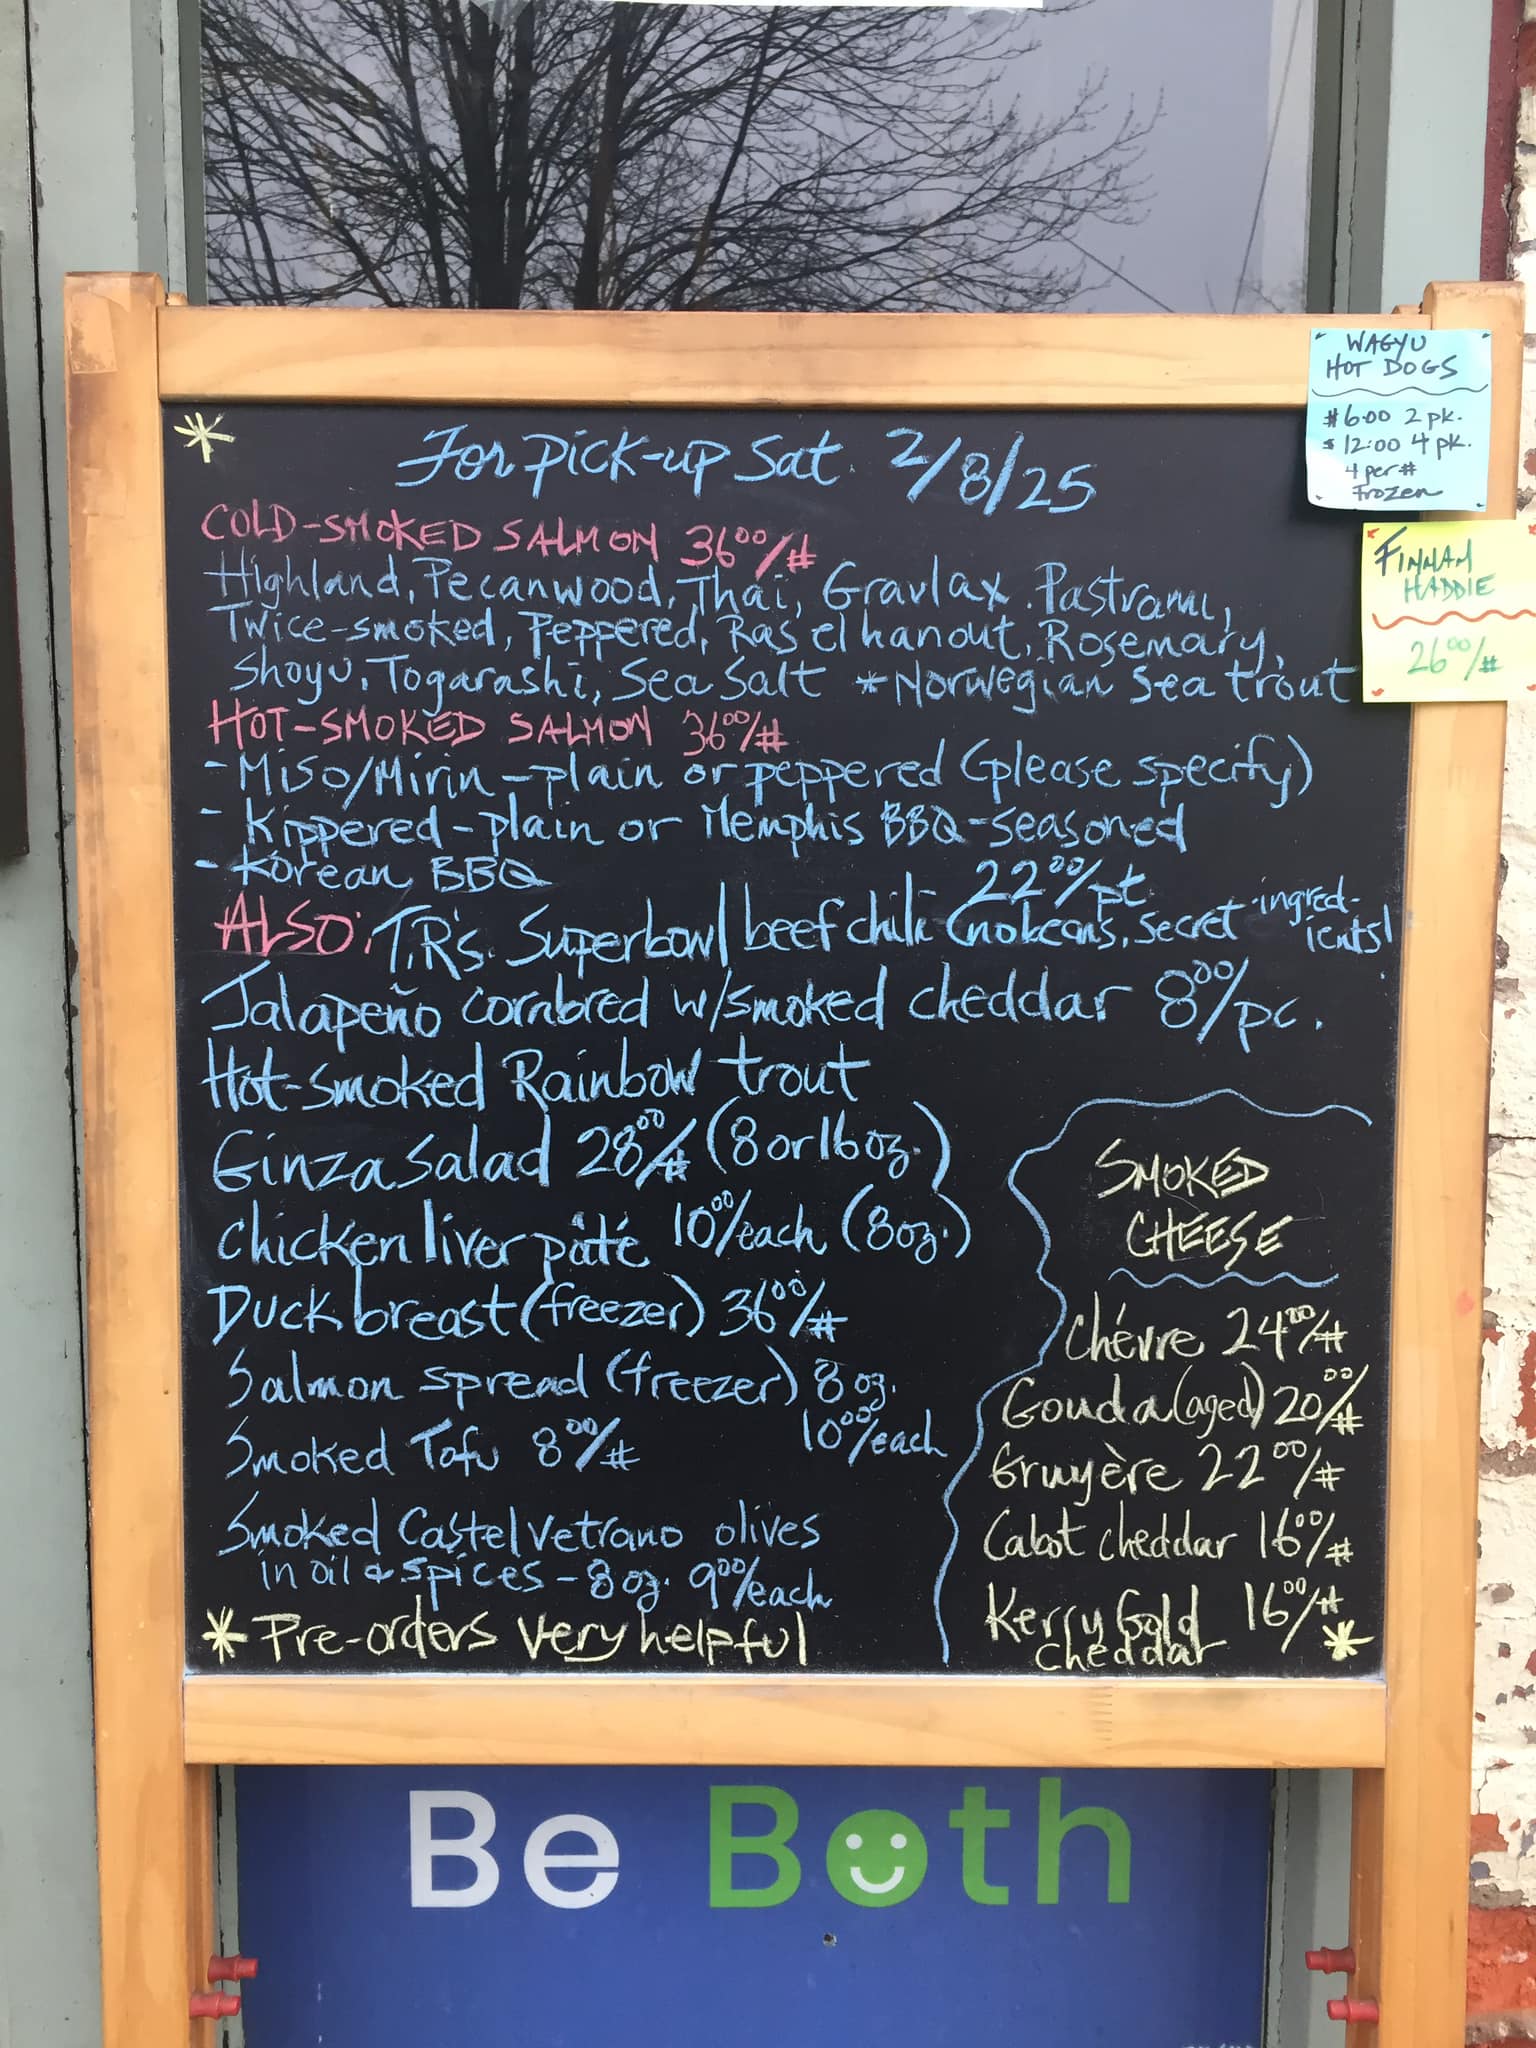 WAGYU
HOT DOGS
$6.00 2 pk.
$12.00 4 pk.
4 per #
Frozen
FINNAN
HADDIE
26⁰⁰/#
* For pick-up Sat. 2/8/25
COLD-SMOKED SALMON 36⁰⁰/#
Highland, Pecanwood, Thai, Gravlax, Pastrami,
Twice-smoked, Peppered, Ras el hanout, Rosemary,
Shoyu, Togarashi, Sea Salt *Norwegian Sea trout
HOT-SMOKED SALMON 36⁰⁰/#
- Miso/Mirin - plain or peppered (please specify)
- Kippered - plain or Memphis BBQ-seasoned
- Korean BBQ
22⁰⁰/pt
ALSO: T.R's. Superbowl beef chili (no beans, secret ingred-
ients!
Jalapeño cornbred w/smoked cheddar 8⁰⁰/pc.
Hot-smoked Rainbow trout
Ginza Salad 28⁰⁰/# (8 or 16 oz.)
Chicken liver pâté 10⁰⁰/each (8 oz.)
Duck breast (freezer) 36⁰⁰/#
Salmon spread (freezer) 8 oz.
10⁰⁰/each
Smoked Tofu 8⁰⁰/#
Smoked Castelvetrano olives
in oil & spices - 8 oz. 9⁰⁰/each
* Pre-orders very helpful
SMOKED
CHEESE
Chévre 24⁰⁰/#
Gouda (aged) 20⁰⁰/#
Gruyère 22⁰⁰/#
Cabot cheddar 16⁰⁰/#
Kerry Gold 16⁰⁰/#
cheddar *
Be Both